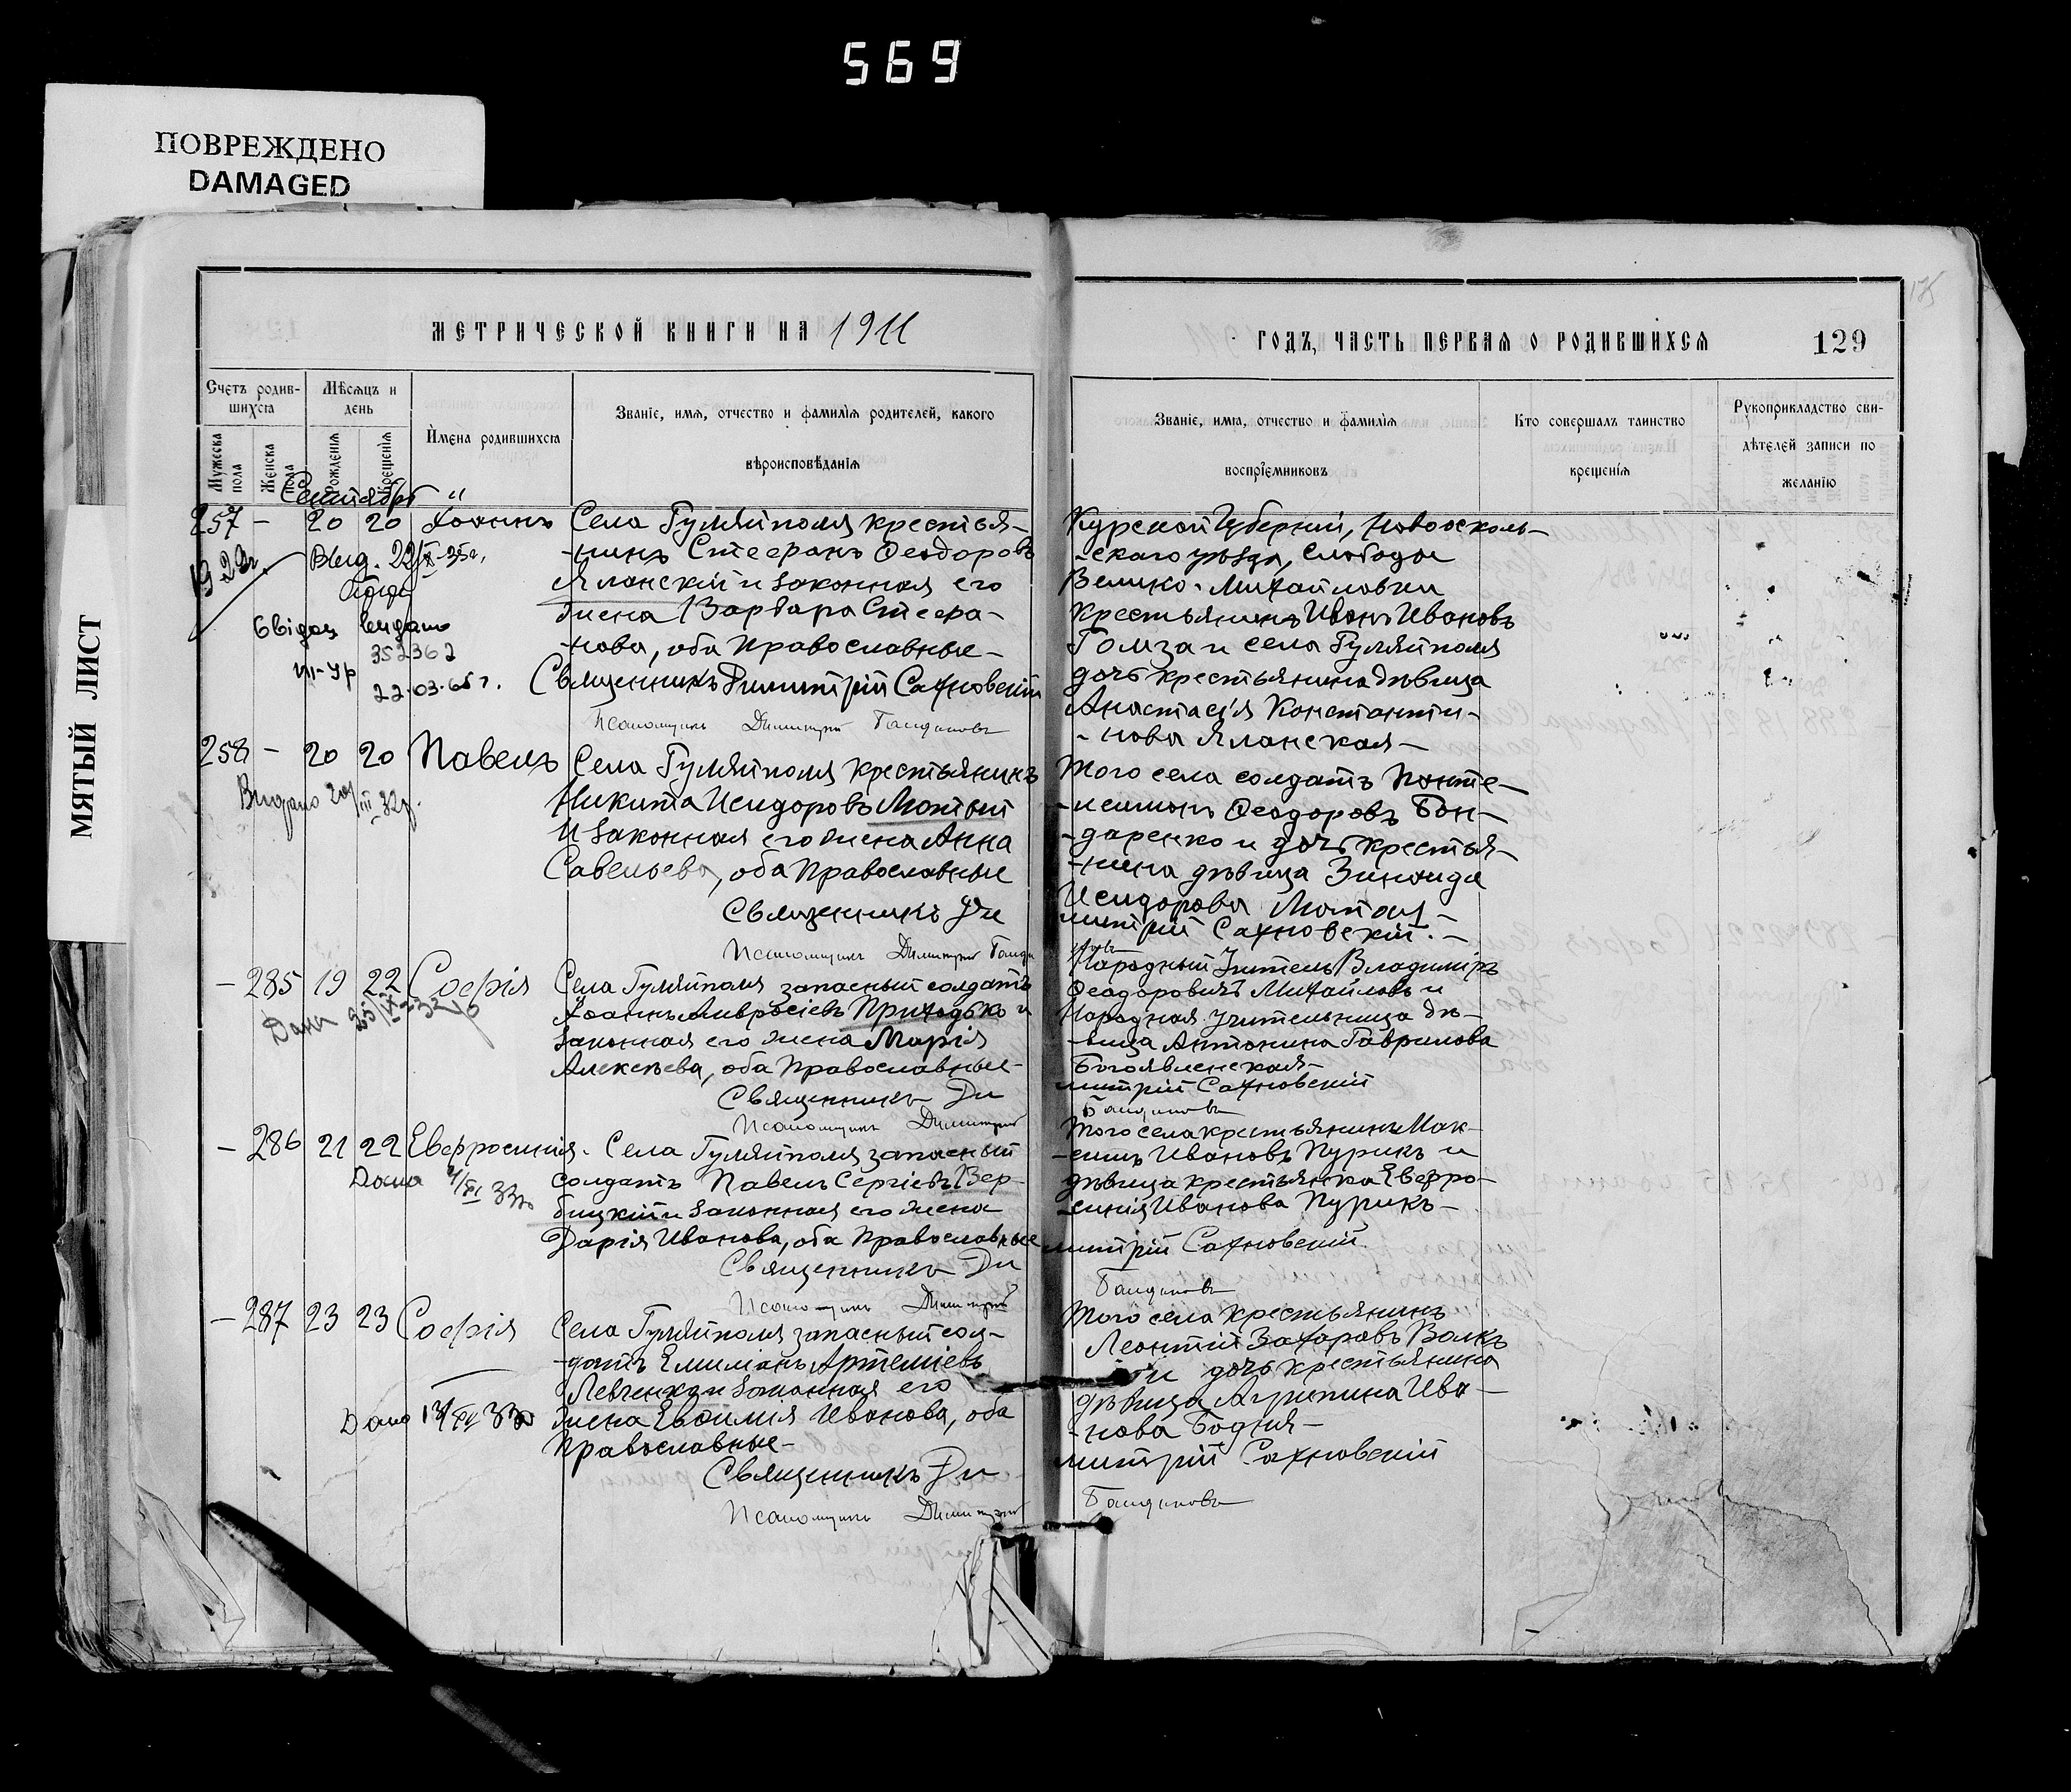 569
ПОВРЕЖДЕНО
DAMAGED
МЯТЫЙ ЛИСТ
МЕТРИЧЕСКОЙ КНИГИ НА 1911
ГОДЪ, ЧАСТЬ ПЕРВАЯ О РОДИВШИХСЯ
129
Счетъ родив-
шихся
Мѣсяцъ и
день
Мужеска пола
Женска пола
Рожденія
Крещенія
Имена родившихся
Званіе, имя, отчество и фамилія родителей, какого
вѣроисповѣданія
Званіе, имя, отчество и фамилія
воспріемниковъ
Кто совершалъ таинство
крещенія
Рукоприкладство сви-
дѣтелей записи по
желанію
Сентябрь
257 - 20 20 Іоаннъ
Села Гуляйполя крестья-
-нинъ Стефанъ Ѳеодоровъ
Яланскій и законная его
жена Варвара Стефа-
-нова, оба Православные-
Священникъ Димитрій Сахновскій
Псаломщикъ Димитрій
Выд. 22/X-35г.
Свідоц видано
352362
22.03.65г.
Курской Губерніи, Новоосколь-
-скаго уѣзда, слободы
Велико-Михайловки
крестьянинъ Иванъ Ивановъ
Гомза и села Гуляйполя
дочь крестьянина дѣвица
Анастасія Константи-
-нова Яланская-
258 - 20 20 Павелъ
Видано 20/III 32г.
Села Гуляйполя крестьянинъ
Никита Исидоровъ Мотый
и законная его жена Анна
Савельева, оба Православные
Священникъ Ди
Псаломщикъ Димитрій
Того села солдатъ Панте-
-леимонъ Ѳеодоровъ Бон-
-даренко и дочь крестья-
-нина дѣвица Зинаида
Исидорова Мотая-
митрій Сахновскій.-
- 285 19 22 Софія
Села Гуляйполя запасный солдатъ
Іоаннъ Амвросіевъ Приходько и
законная его жена Марія
Алексѣева, оба Православные-
Священникъ Ди
Псаломщикъ Димитрій
Народный Учитель Владиміръ
Ѳеодоровичъ Михайловъ и
Народная Учительница дѣ-
-вица Антонина Гаврилова
Богоявленская-
митрій Сахновскій
- 286 21 22 Евфросинія.
Села Гуляйполя запасный
солдатъ Павелъ Сергіевъ Вер-
бицкій и законная его жена
Дарія Иванова, оба Православные
Священникъ Ди
Псаломщикъ Димитрій
Того села крестьянинъ Мак-
-симъ Ивановъ Пурикъ и
дѣвица крестьянка Евфро-
-синія Иванова Пурикъ-
митрій Сахновскій
- 287 23 23 Софія
Села Гуляйполя запасный сол-
-датъ Емиліанъ Артеміевъ
Левченко и законная его
жена Евфимія Иванова, оба
Православные-
Священникъ Ди
Псаломщикъ Димитрій
Того села крестьянинъ
Леонтій Захаровъ Волкъ
и дочь крестьянина
дѣвица Агрипина Ива-
-нова Бодня-
митрій Сахновскій